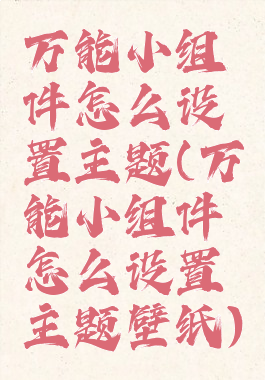 万能小组
件怎么设
置主题(万
能小组件
怎么设置
主题壁纸)